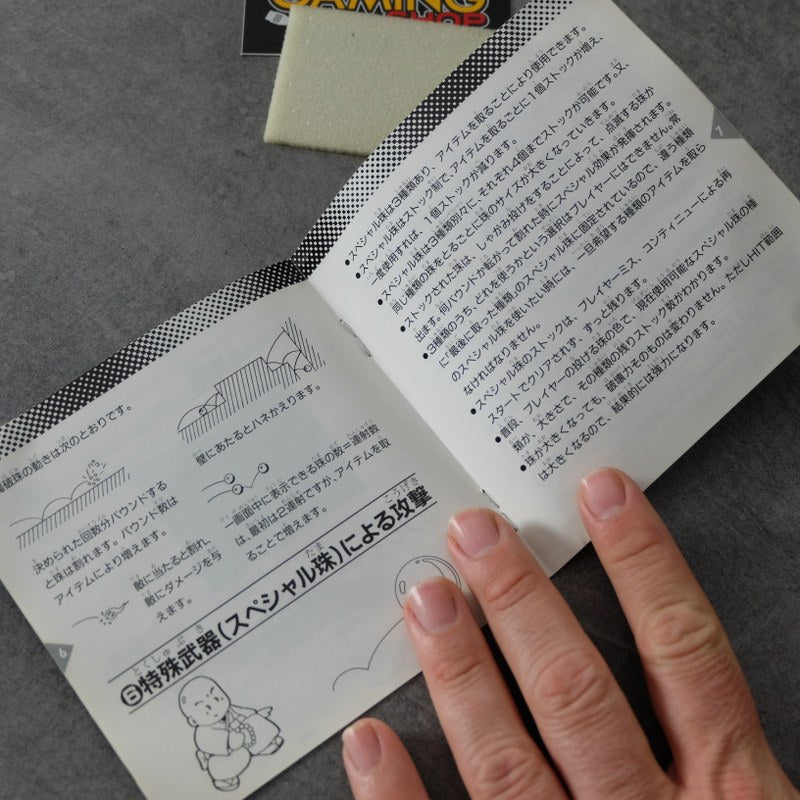 GAMING
SHOP
破珠の動きは次のとおりです。
決められた回数分バウンドする
と珠は割れます。バウンド数は
アイテムにより増えます。
壁にあたるとハネかえります。
敵に当たると割れ、
敵にダメージを与
えます。
画面中に表示できる珠の数=連射数
は、最初は2連射ですが、アイテムを取
ることで増えます。
特殊武器(スペシャル珠)による攻撃
6
7
●スペシャル珠は3種類あり、アイテムを取ることにより使用できます。
●スペシャル珠はストック制で、アイテムを取るごとに1個ストックが増え、
一度使用すれば、1個ストックが減ります。
●スペシャル珠は3種類別々に、それぞれ4個までストックが可能です。又、
同じ種類の珠をとるごとに珠のサイズが大きくなっていきます。
●ストックされた珠は、しゃがみ投げをすることによって、点滅する珠が
出ます。何バウンドか転がって割れた時にスペシャル効果が発揮されます。
●3種類のうち、どれを使うかという選択はプレイヤーにはできません。常
に「最後に取った種類」のスペシャル珠に固定されているので、違う種類
のスペシャル珠を使いたい時には、一旦希望する種類のアイテムを取ら
なければなりません。
●スペシャル珠のストックは、プレイヤーミス、コンティニューによる再
スタートでクリアされず、ずっと残ります。
●普段、プレイヤーの投げる珠の色で、現在使用可能なスペシャル珠の種
類が、大きさで、その種類の残りストック数がわかります。
●珠が大きくなっても、破壊力そのものは変わりません。ただしHIT範囲
は大きくなるので、結果的には強力になります。